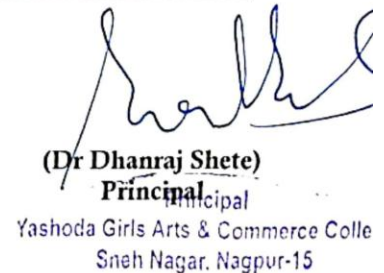 (Dr Dhanraj Shete)
Principal
Principal
Yashoda Girls Arts & Commerce Colle
Sneh Nagar, Nagpur-15